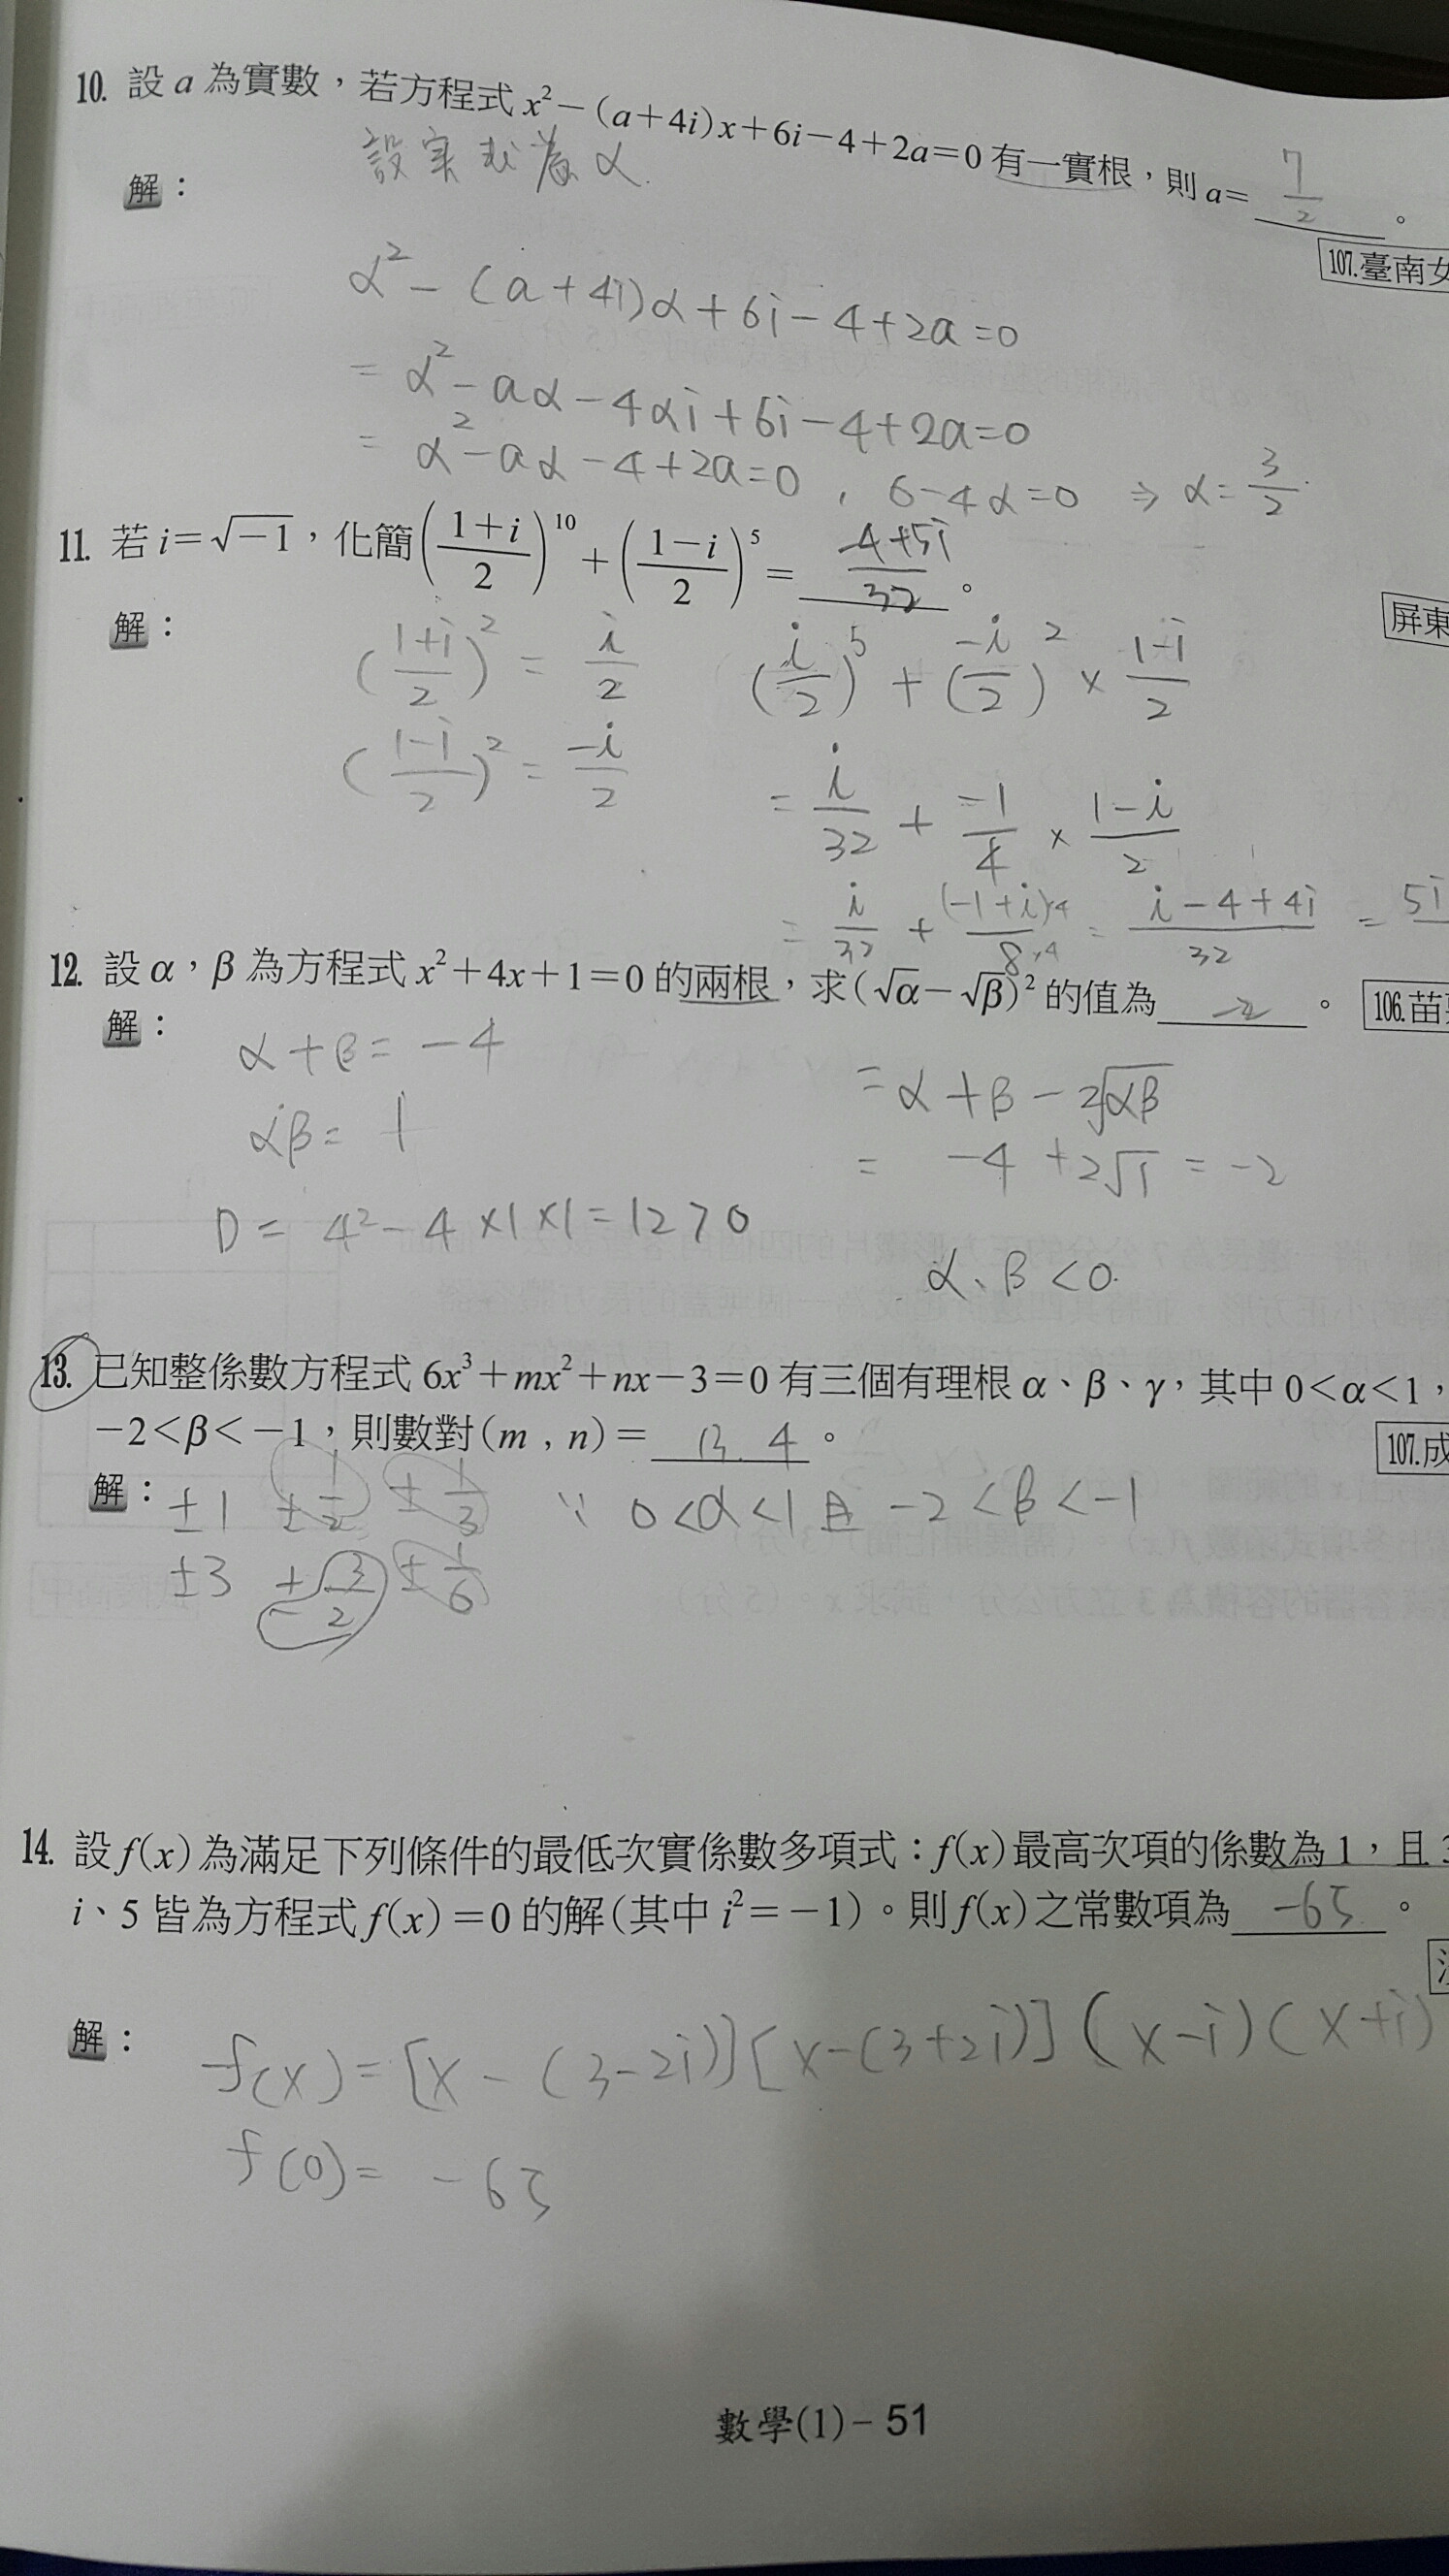 10. 設 a 為實數，若方程式 x²－(a＋4i)x＋6i－4＋2a＝0 有一實根，則 a＝ 7/2 。
設實根為 α.
解：
107.臺南女
α² － (a＋4i)α＋6i－4＋2a＝0
＝ α²－aα－4αi＋6i－4＋2a＝0
＝ α²－aα－4＋2a＝0 , 6－4α＝0 ⇒ α＝3/2
11. 若 i＝√－1，化簡((1＋i)/2)¹⁰＋((1－i)/2)⁵＝ (-4+5i)/32 。
屏東
解：
((1+i)/2)² = i/2 (i/2)⁵ + (-i/2)² × (1-i)/2
((1-i)/2)² = -i/2
= i/32 + -1/4 × (1-i)/2
= i/32 + (-1+i)×4/8×4 = (i-4+4i)/32 = 5i
12. 設 α，β 為方程式 x²＋4x＋1＝0 的兩根，求(√α－√β)² 的值為 -2 。 106.苗
解：
α＋β＝ －4 ＝α＋β－2√αβ
αβ＝ 1
＝ －4 ＋2√1 ＝ －2
D ＝ 4²－4×1×1＝12＞0
α、β＜0.
13. 已知整係數方程式 6x³＋mx²＋nx－3＝0 有三個有理根 α、β、γ，其中 0＜α＜1，
－2＜β＜－1，則數對(m , n)＝ 13. 4 。
107.成
解： ±1 ±1/2 ±1/3 ∵ 0＜α＜1 且 －2＜β＜－1
±3 ±3/2 ±1/6
14. 設 f(x) 為滿足下列條件的最低次實係數多項式：f(x) 最高次項的係數為 1，且 3
i、5 皆為方程式 f(x)＝0 的解(其中 i²＝－1)。則 f(x) 之常數項為 -65 。
解： f(x)＝[x－(3－2i)][x－(3＋2i)](x－i)(x＋i)
f(0)＝ －65
數學(1)－51